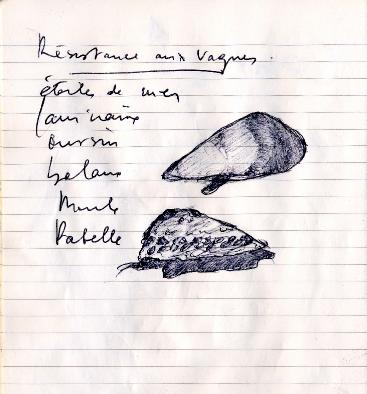 Résistance aux vagues.
étoiles de mer
laminaire
oursin
balane
Moule
Patelle